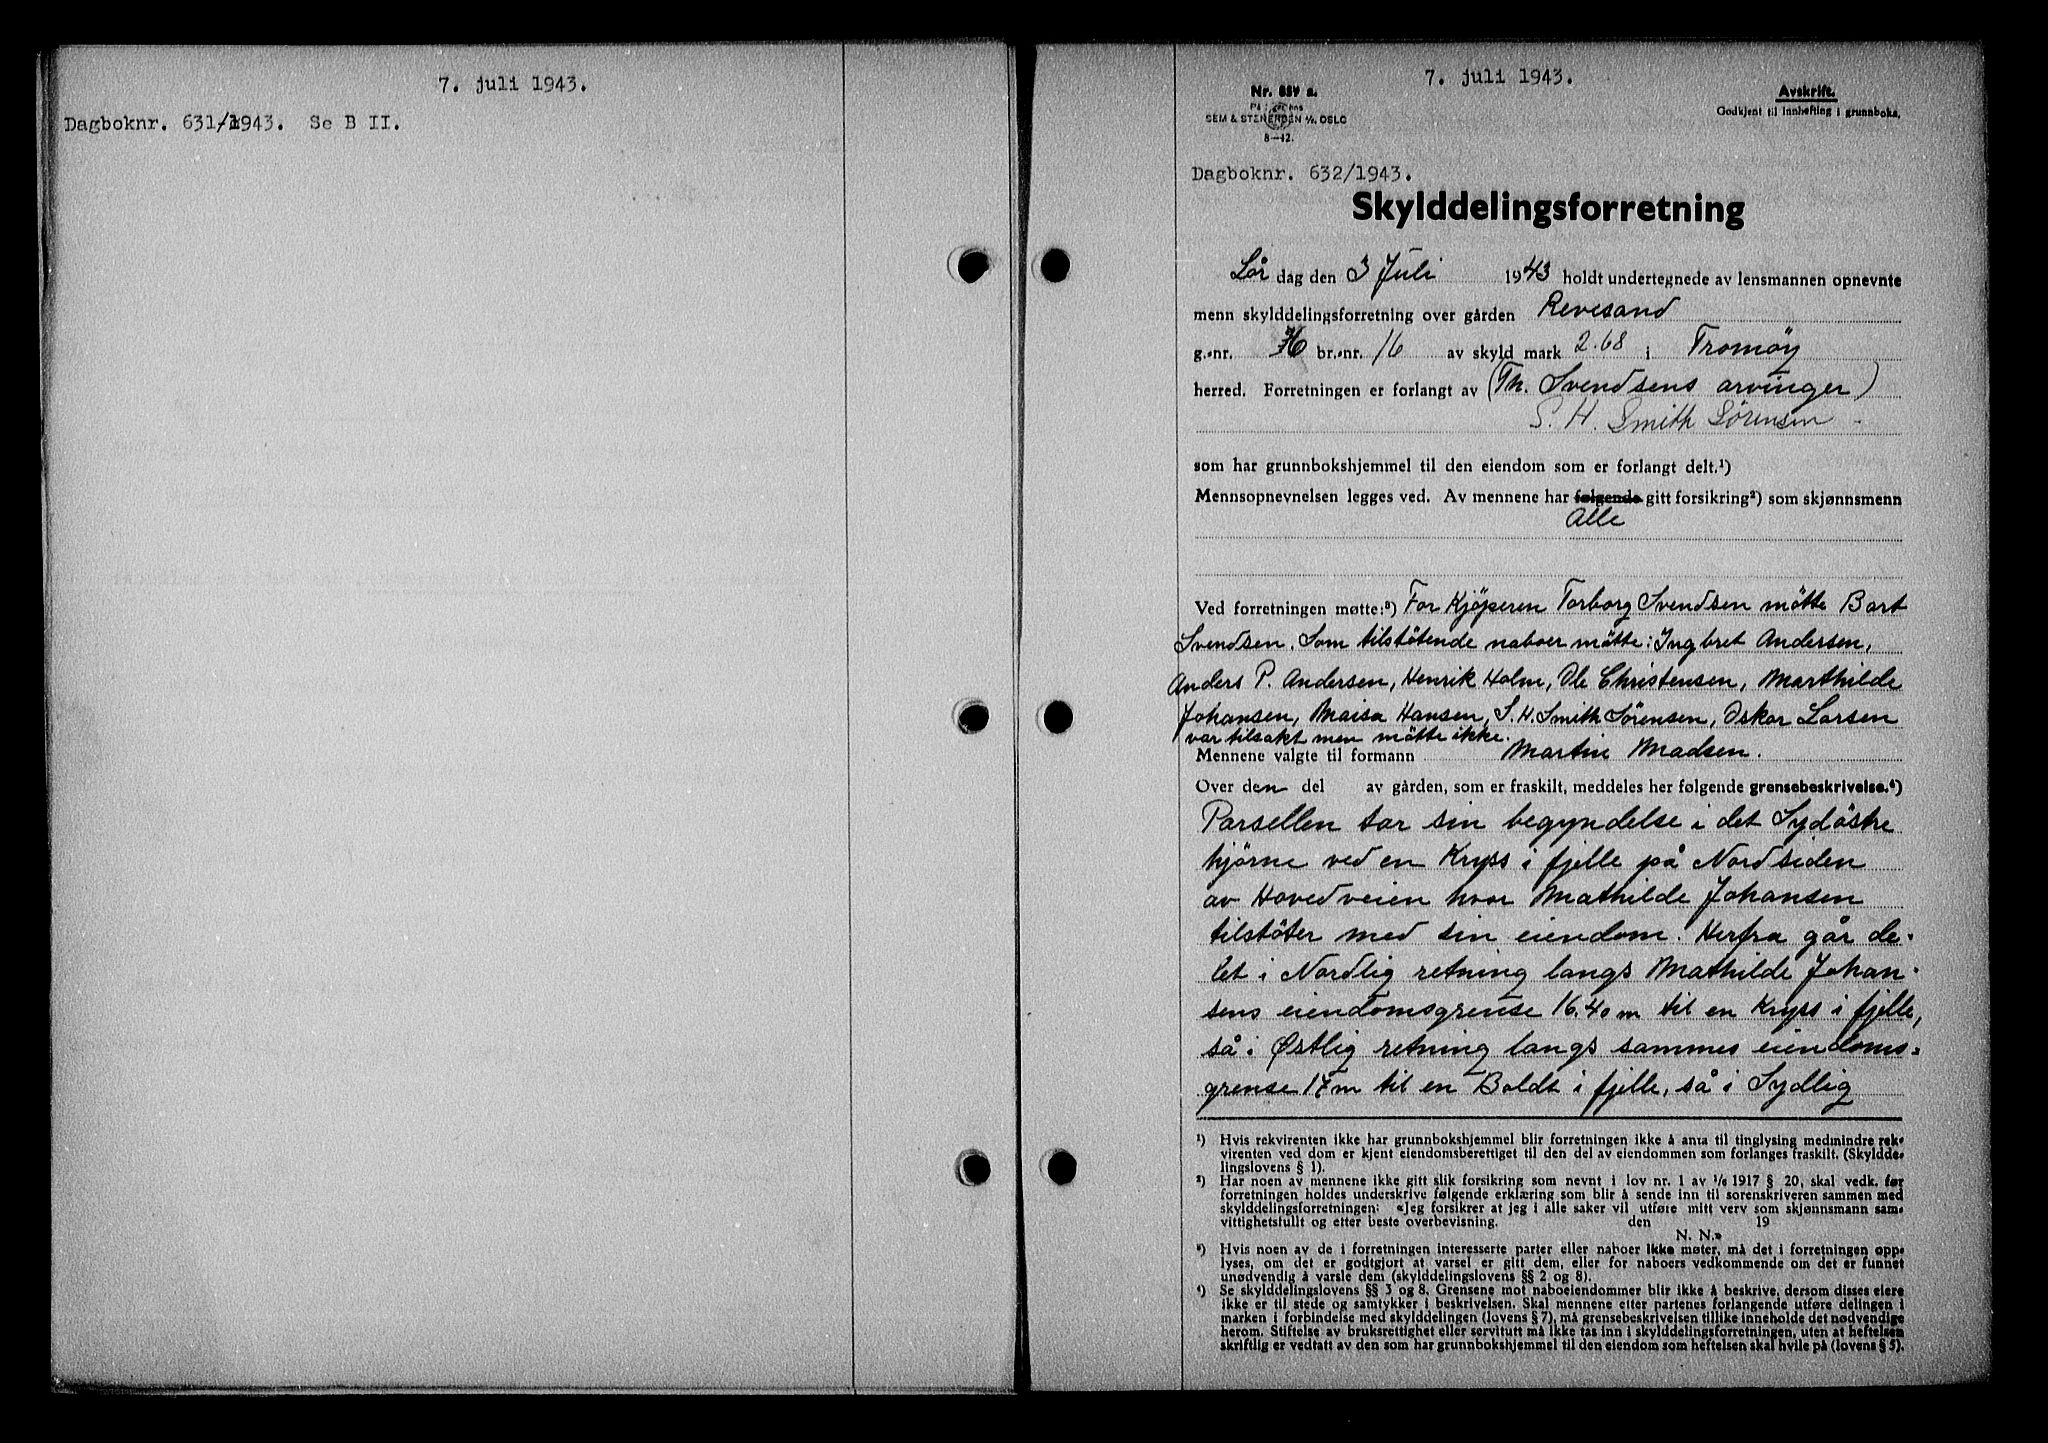 7. juli 1943.
Dagboknr. 631/1943. Se B II.
7. juli 1943.
Nr. 859 a.
SEM & STENERSEN A/S, OSLO
8—42.
Avskrift.
Godkjent til innhefting i grunnboka.
Dagboknr. 632/1943.
Skylddelingsforretning
Lør dag den 3 Juli 1943 holdt undertegnede av lensmannen opnevnte
menn skylddelingsforretning over gården Revesand
g.-nr. br.-nr. 16 av skyld mark 2.68 i Tromøy
herred. Forretningen er forlangt av (Th. Svendsens arvinger)
S. H. Smith Sørensen
som har grunnbokshjemmel til den eiendom som er forlangt delt.¹)
Mennsopnevnelsen legges ved. Av mennene har følgende gitt forsikring²) som skjønnsmenn
Alle
Ved forretningen møtte:³) For Kjöperen Torborg Svendsen mötte Bart
Svendsen. Som tilstötende naboer mötte: Ingbret Andersen,
Anders P. Andersen, Henrik Holm, Ole Christensen, Marthilde
Johansen, Maisa Hansen, S. H. Smith Sörensen, Oskar Larsen
var tilsakt men mötte ikke.
Mennene valgte til formann Martin Madsen.
Over den del av gården, som er fraskilt, meddeles her følgende grensebeskrivelse.⁴)
Parsellen tar sin begyndelse i det Sydöstre
hjörne ved en Kryss i fjelle på Nordsiden
av Hovedveien hvor Mathilde Johansen
tilstöter med sin eiendom. Herfra går de-
let i Nordlig retning langs Mathilde Johan-
sens eiendomsgrense 16.40 m til en Kryss i fjelle,
så i Østlig retning langs sammes eiendoms-
grense 17 m til en Boldt i fjelle, så i Sydlig
¹) Hvis rekvirenten ikke har grunnbokshjemmel blir forretningen ikke å anta til tinglysing medmindre rek-
virenten ved dom er kjent eiendomsberettiget til den del av eiendommen som forlanges fraskilt. (Skyldde-
lingslovens § 1).
²) Har noen av mennene ikke gitt slik forsikring som nevnt i lov nr. 1 av 1/6 1917 § 20, skal vedk. før
forretningen holdes underskrive følgende erklæring som blir å sende inn til sorenskriveren sammen med
skylddelingsforretningen: «Jeg forsikrer at jeg i alle saker vil utføre mitt verv som skjønnsmann sam-
vittighetsfullt og etter beste overbevisning. den 19
N. N.»
³) Hvis noen av de i forretningen interesserte parter eller naboer ikke møter, må det i forretningen opp-
lyses, om det er godtgjort at varsel er gitt dem, eller for naboers vedkommende om det er funnet
unødvendig å varsle dem (skylddelingslovens §§ 2 og 8).
⁴) Se skylddelingslovens §§ 3 og 8. Grensene mot naboeiendommer blir ikke å beskrive, dersom disses eiere
ikke er til stede og samtykker i beskrivelsen. Skal mennene etter partenes forlangende utføre delingen i
marken i forbindelse med skylddelingen (lovens § 7), må grensebeskrivelsen tillike inneholde det nødvendige
herom. Stiftelse av bruksrettighet eller servitutt må ikke tas inn i skylddelingsforretningen, uten at heftelsen
skriftlig er vedtatt av den som har grunnbokshjemmel til den eiendom som heftelsen skal hvile på (lovens § 5).